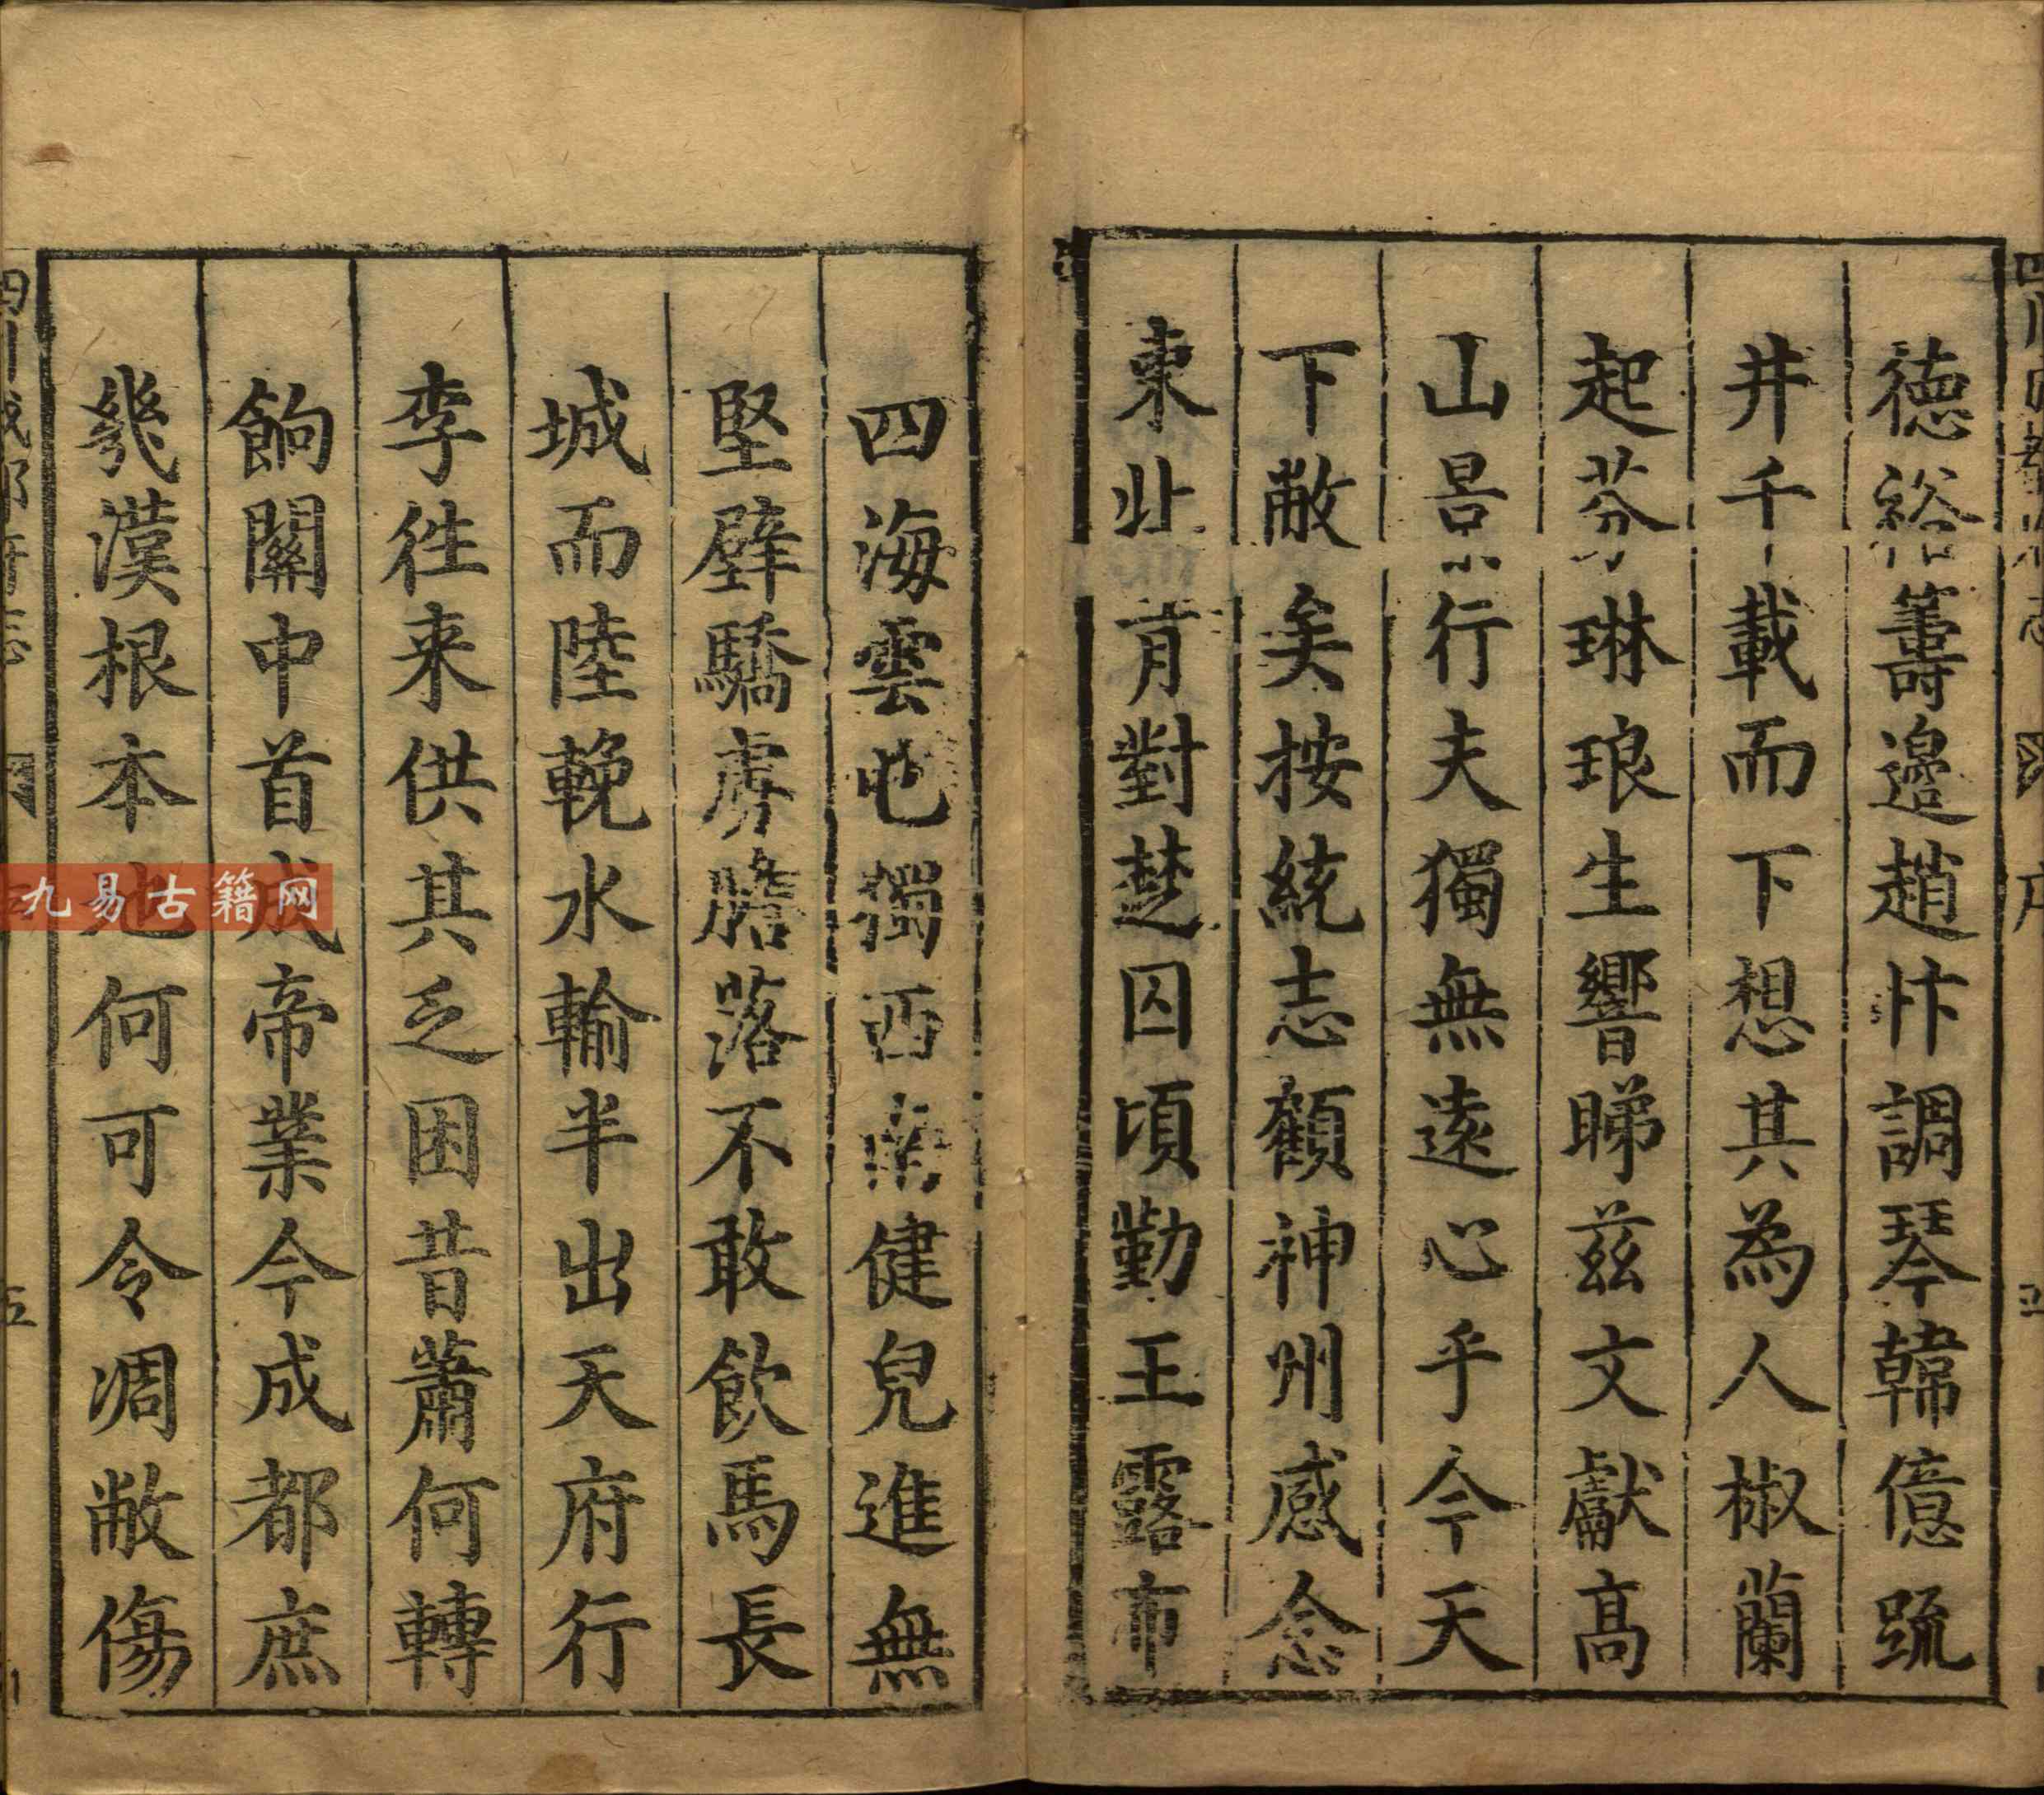 德裕籌邊趙忭調琴韓億䟽
井千載而下想其為人椒蘭
起芬琳琅生響睇茲文獻高
山景行夫獨無遠心乎今天
下敝矣按統志顧神州感念
東北有對楚囚頃勤王露布
四海雲屯獨西南健兒進無
堅壁驕虜膽落不敢飲馬長
城而陸輓水輸半出天府行
李徃来供其乏困昔蕭何轉
餉關中首成帝業今成都庶
幾漢根本地何可令凋敝傷
四川成都府志
序
五
九易古籍网